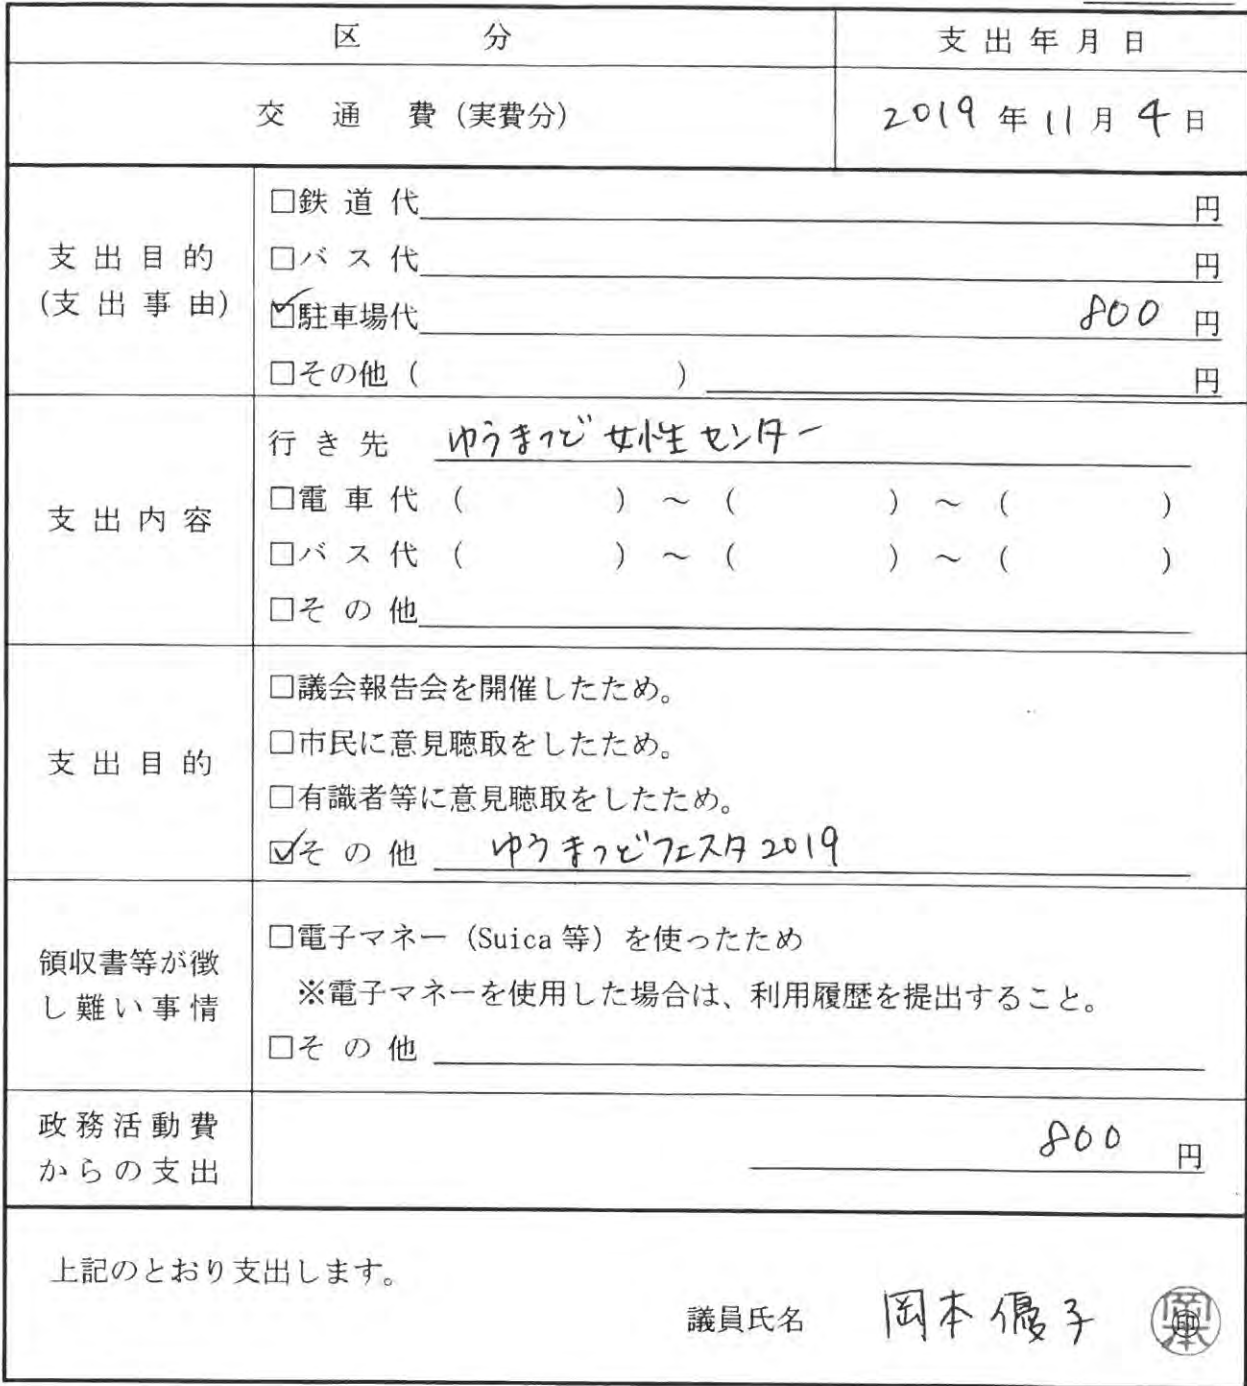 区 分 支出年月日
交 通 費（実費分） 2019 年 11 月 4 日
支出目的
（支出事由）
□鉄道代 円
□バス代 円
☑駐車場代 800 円
□その他（ ） 円
支出内容
行き先 ゆうまつど女性センター
□電車代（ ）～（ ）～（ ）
□バス代（ ）～（ ）～（ ）
□その他
支出目的
□議会報告会を開催したため。
□市民に意見聴取をしたため。
□有識者等に意見聴取をしたため。
☑その他 ゆうまつどフェスタ2019
領収書等が徴
し難い事情
□電子マネー（Suica 等）を使ったため
※電子マネーを使用した場合は、利用履歴を提出すること。
□その他
政務活動費
からの支出
800 円
上記のとおり支出します。
議員氏名 岡本優子 ㊞
岡本